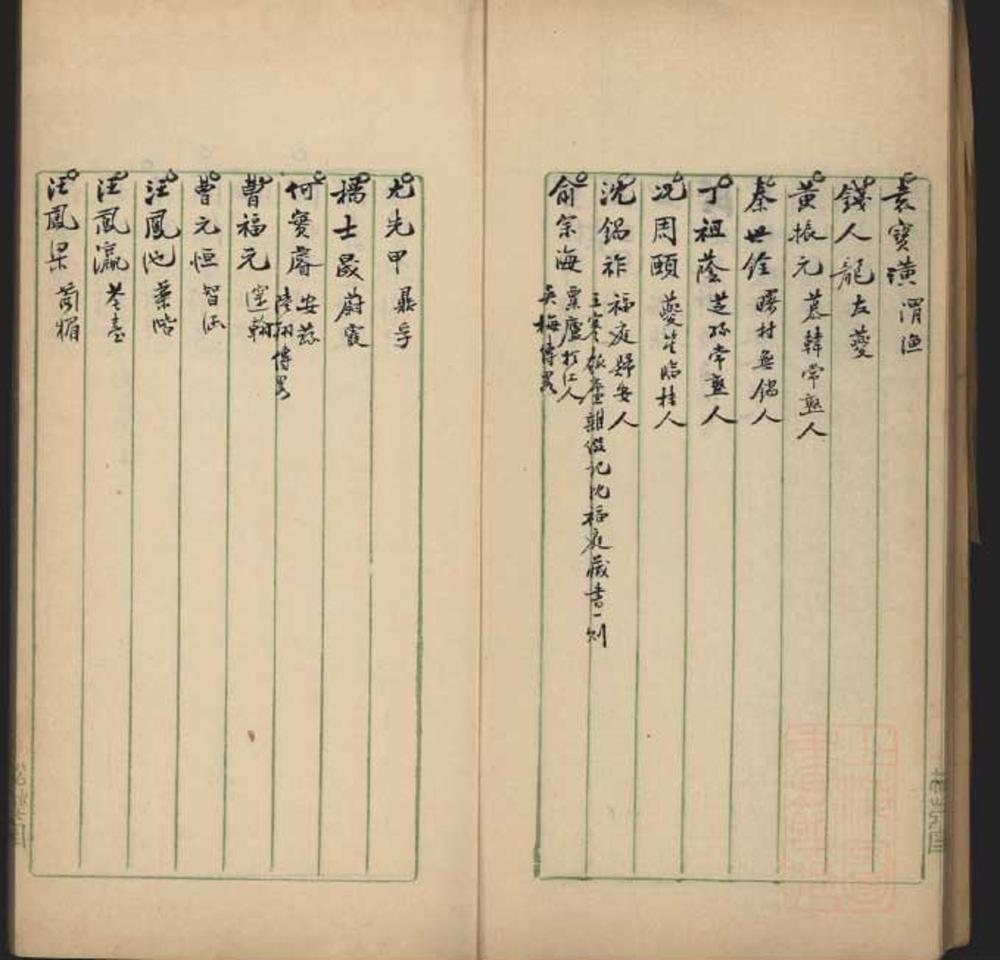 袁寶璜 渭漁
錢人龍 友夔
黃振元 慕韓常熟人
秦世銓 曙村無錫人
丁祖蔭 芝孫常熟人
況周頤 夔笙臨桂人
沈錫祚 福庭歸安人
王 雜 記沈福庭藏書一則
俞宗海 粟廬松江人
吳梅傳畧
尤先甲 鼎孚
士 蔚霞
何寶睿 安蓀
傳畧
曹福元 邃翰
曹元恒 智涵
汪鳳池 藥階
汪鳳瀛 荃臺
汪鳳梁 蘭楣